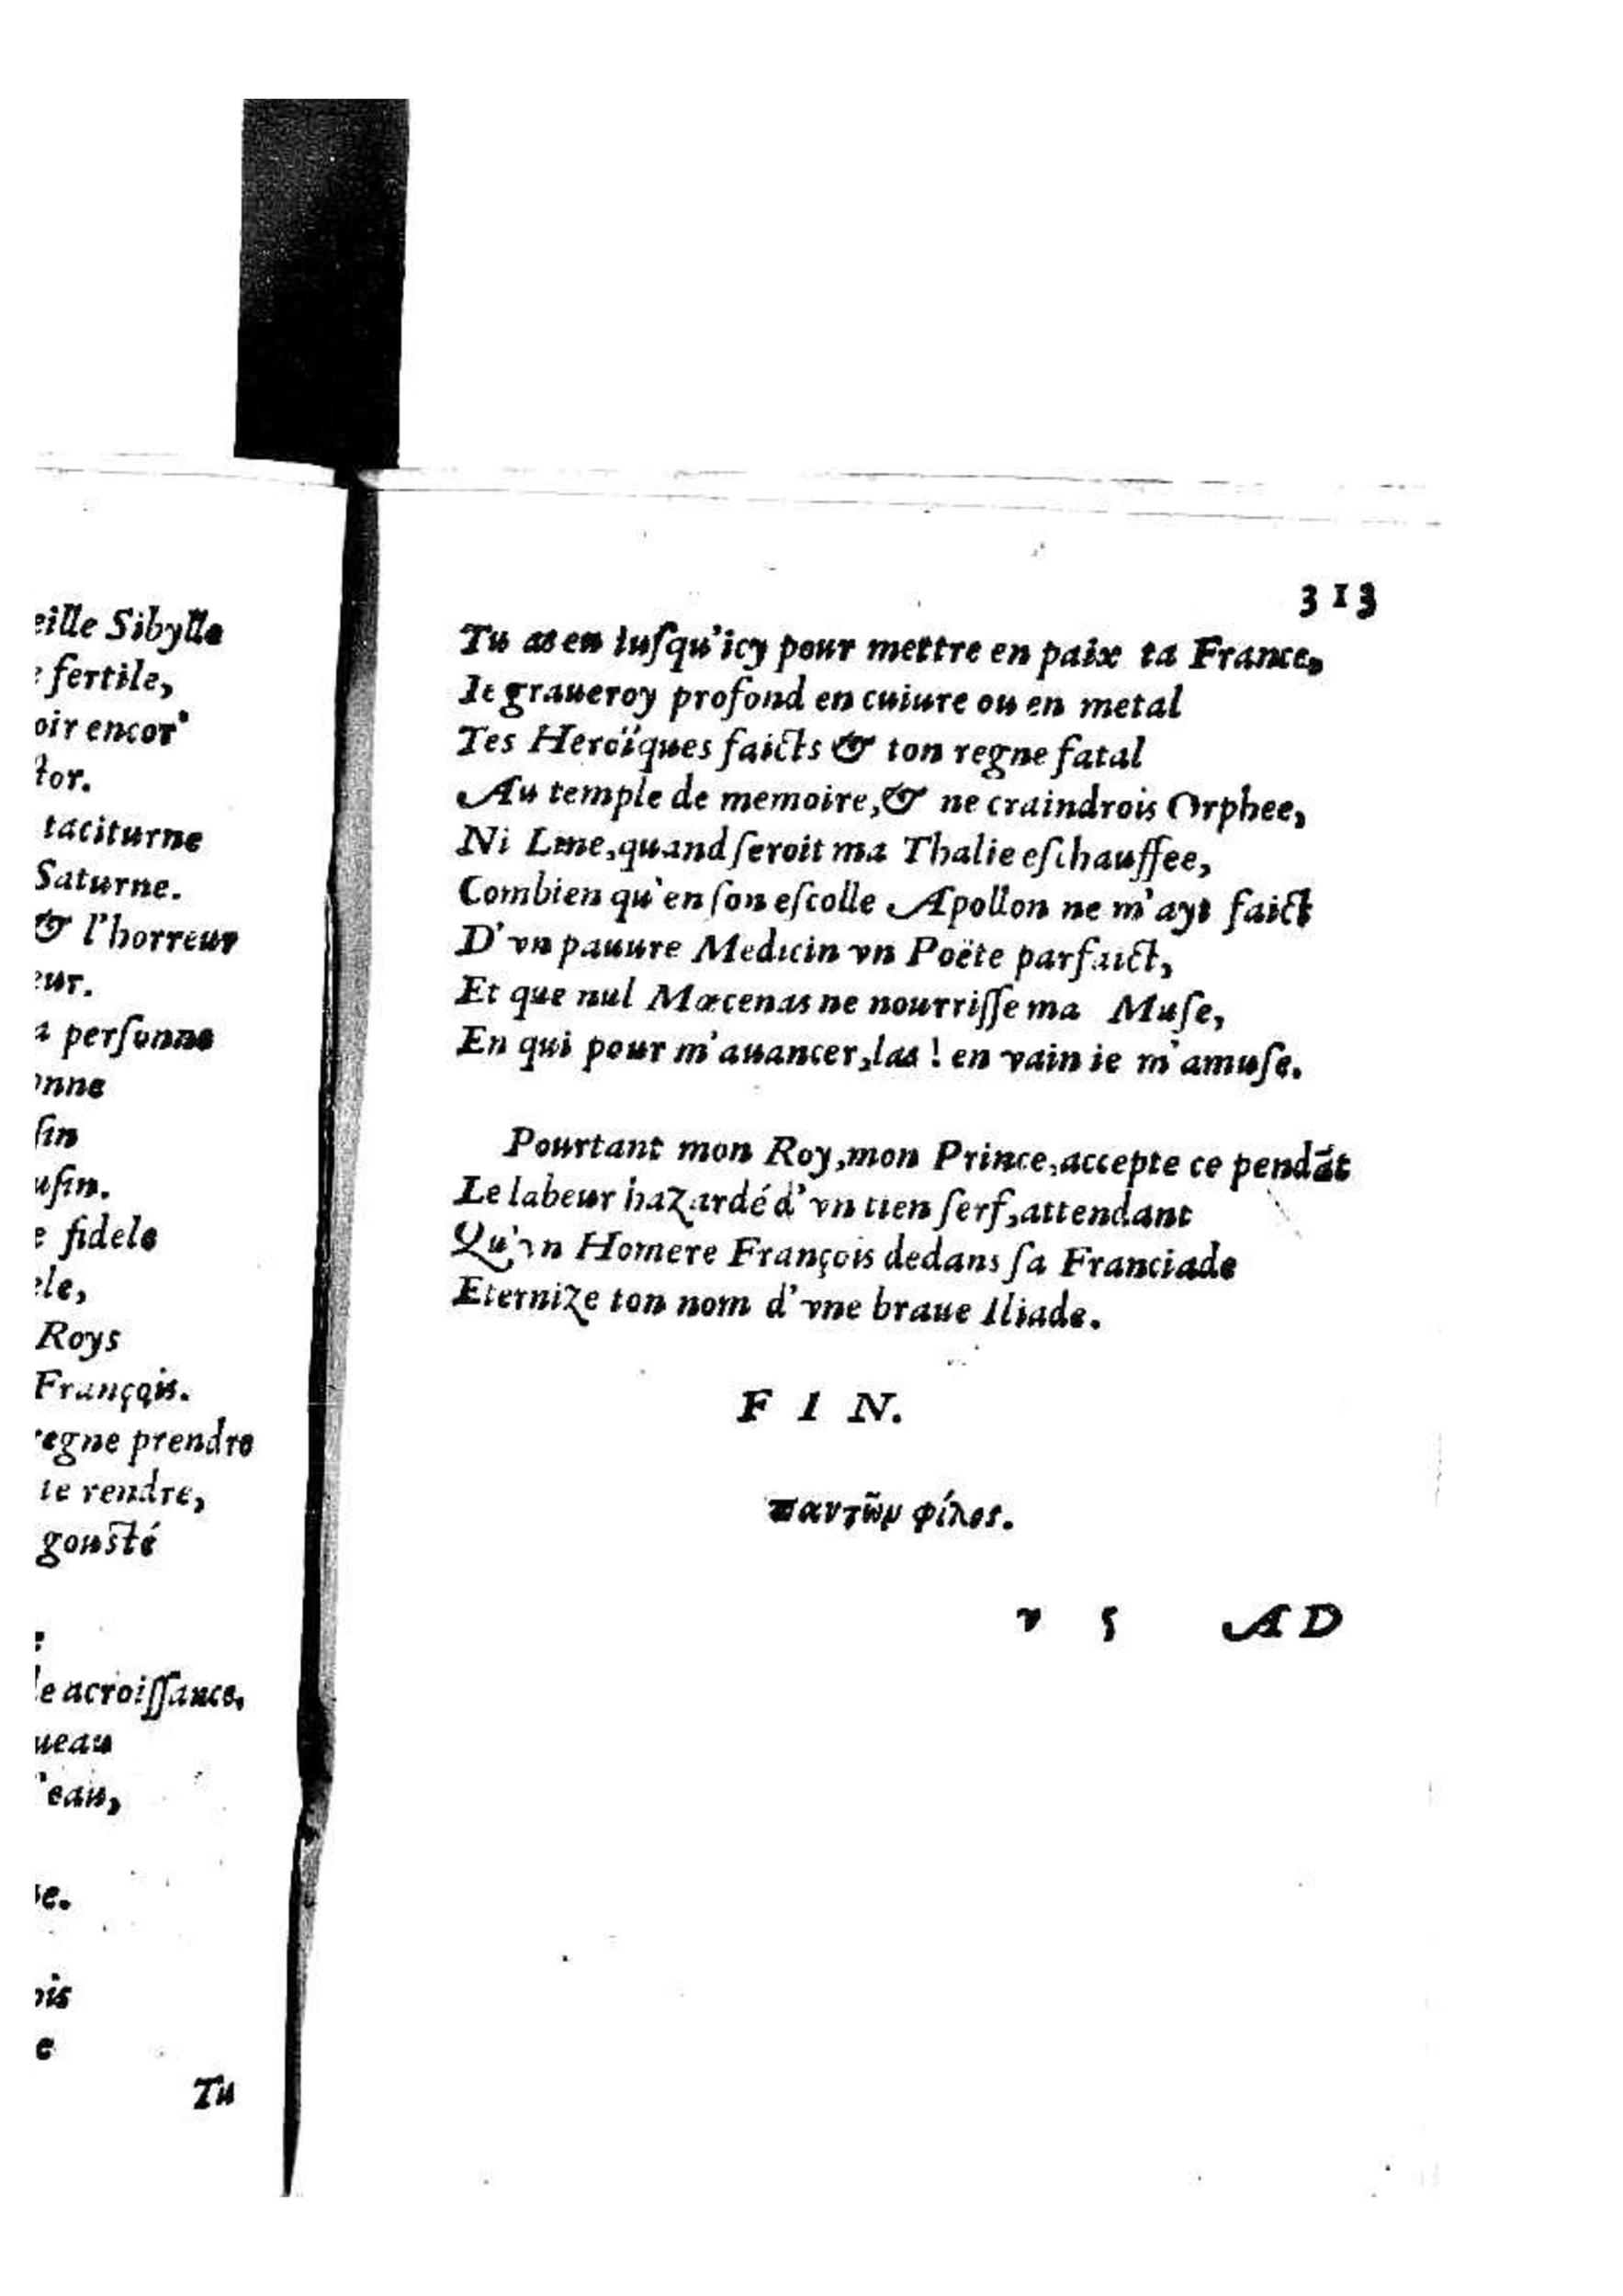 eille Sibylle
fertile,
oir encor'
tor.
taciturne
Saturne.
& l'horreur
eur.
a perſonne
onne
ſin
uſin.
e fidele
ele,
Roys
François.
regne prendre
te rendre,
gousté
e acroiſſance,
ueau
eau,
e.
ois
e
Tu
313
Tu as eu Iuſqu'icy pour mettre en paix ta France,
Ie graueroy profond en cuiure ou en metal
Tes Heroïques faicts & ton regne fatal
Au temple de memoire, & ne craindrois Orphee,
Ni Line, quand ſeroit ma Thalie eſchauffee,
Combien qu'en ſon eſcolle Apollon ne m'ayt faict
D'vn pauure Medicin vn Poëte parfaict,
Et que nul Mœcenas ne nourriſſe ma Muſe,
En qui pour m'auancer, las ! en vain ie m'amuſe.
Pourtant mon Roy, mon Prince, accepte ce pendāt
Le labeur hazardé d'vn tien ſerf, attendant
Qu'vn Homere François dedans ſa Franciade
Eternize ton nom d'vne braue Iliade.
F I N.
παντῶν φίλος.
v 5 AD